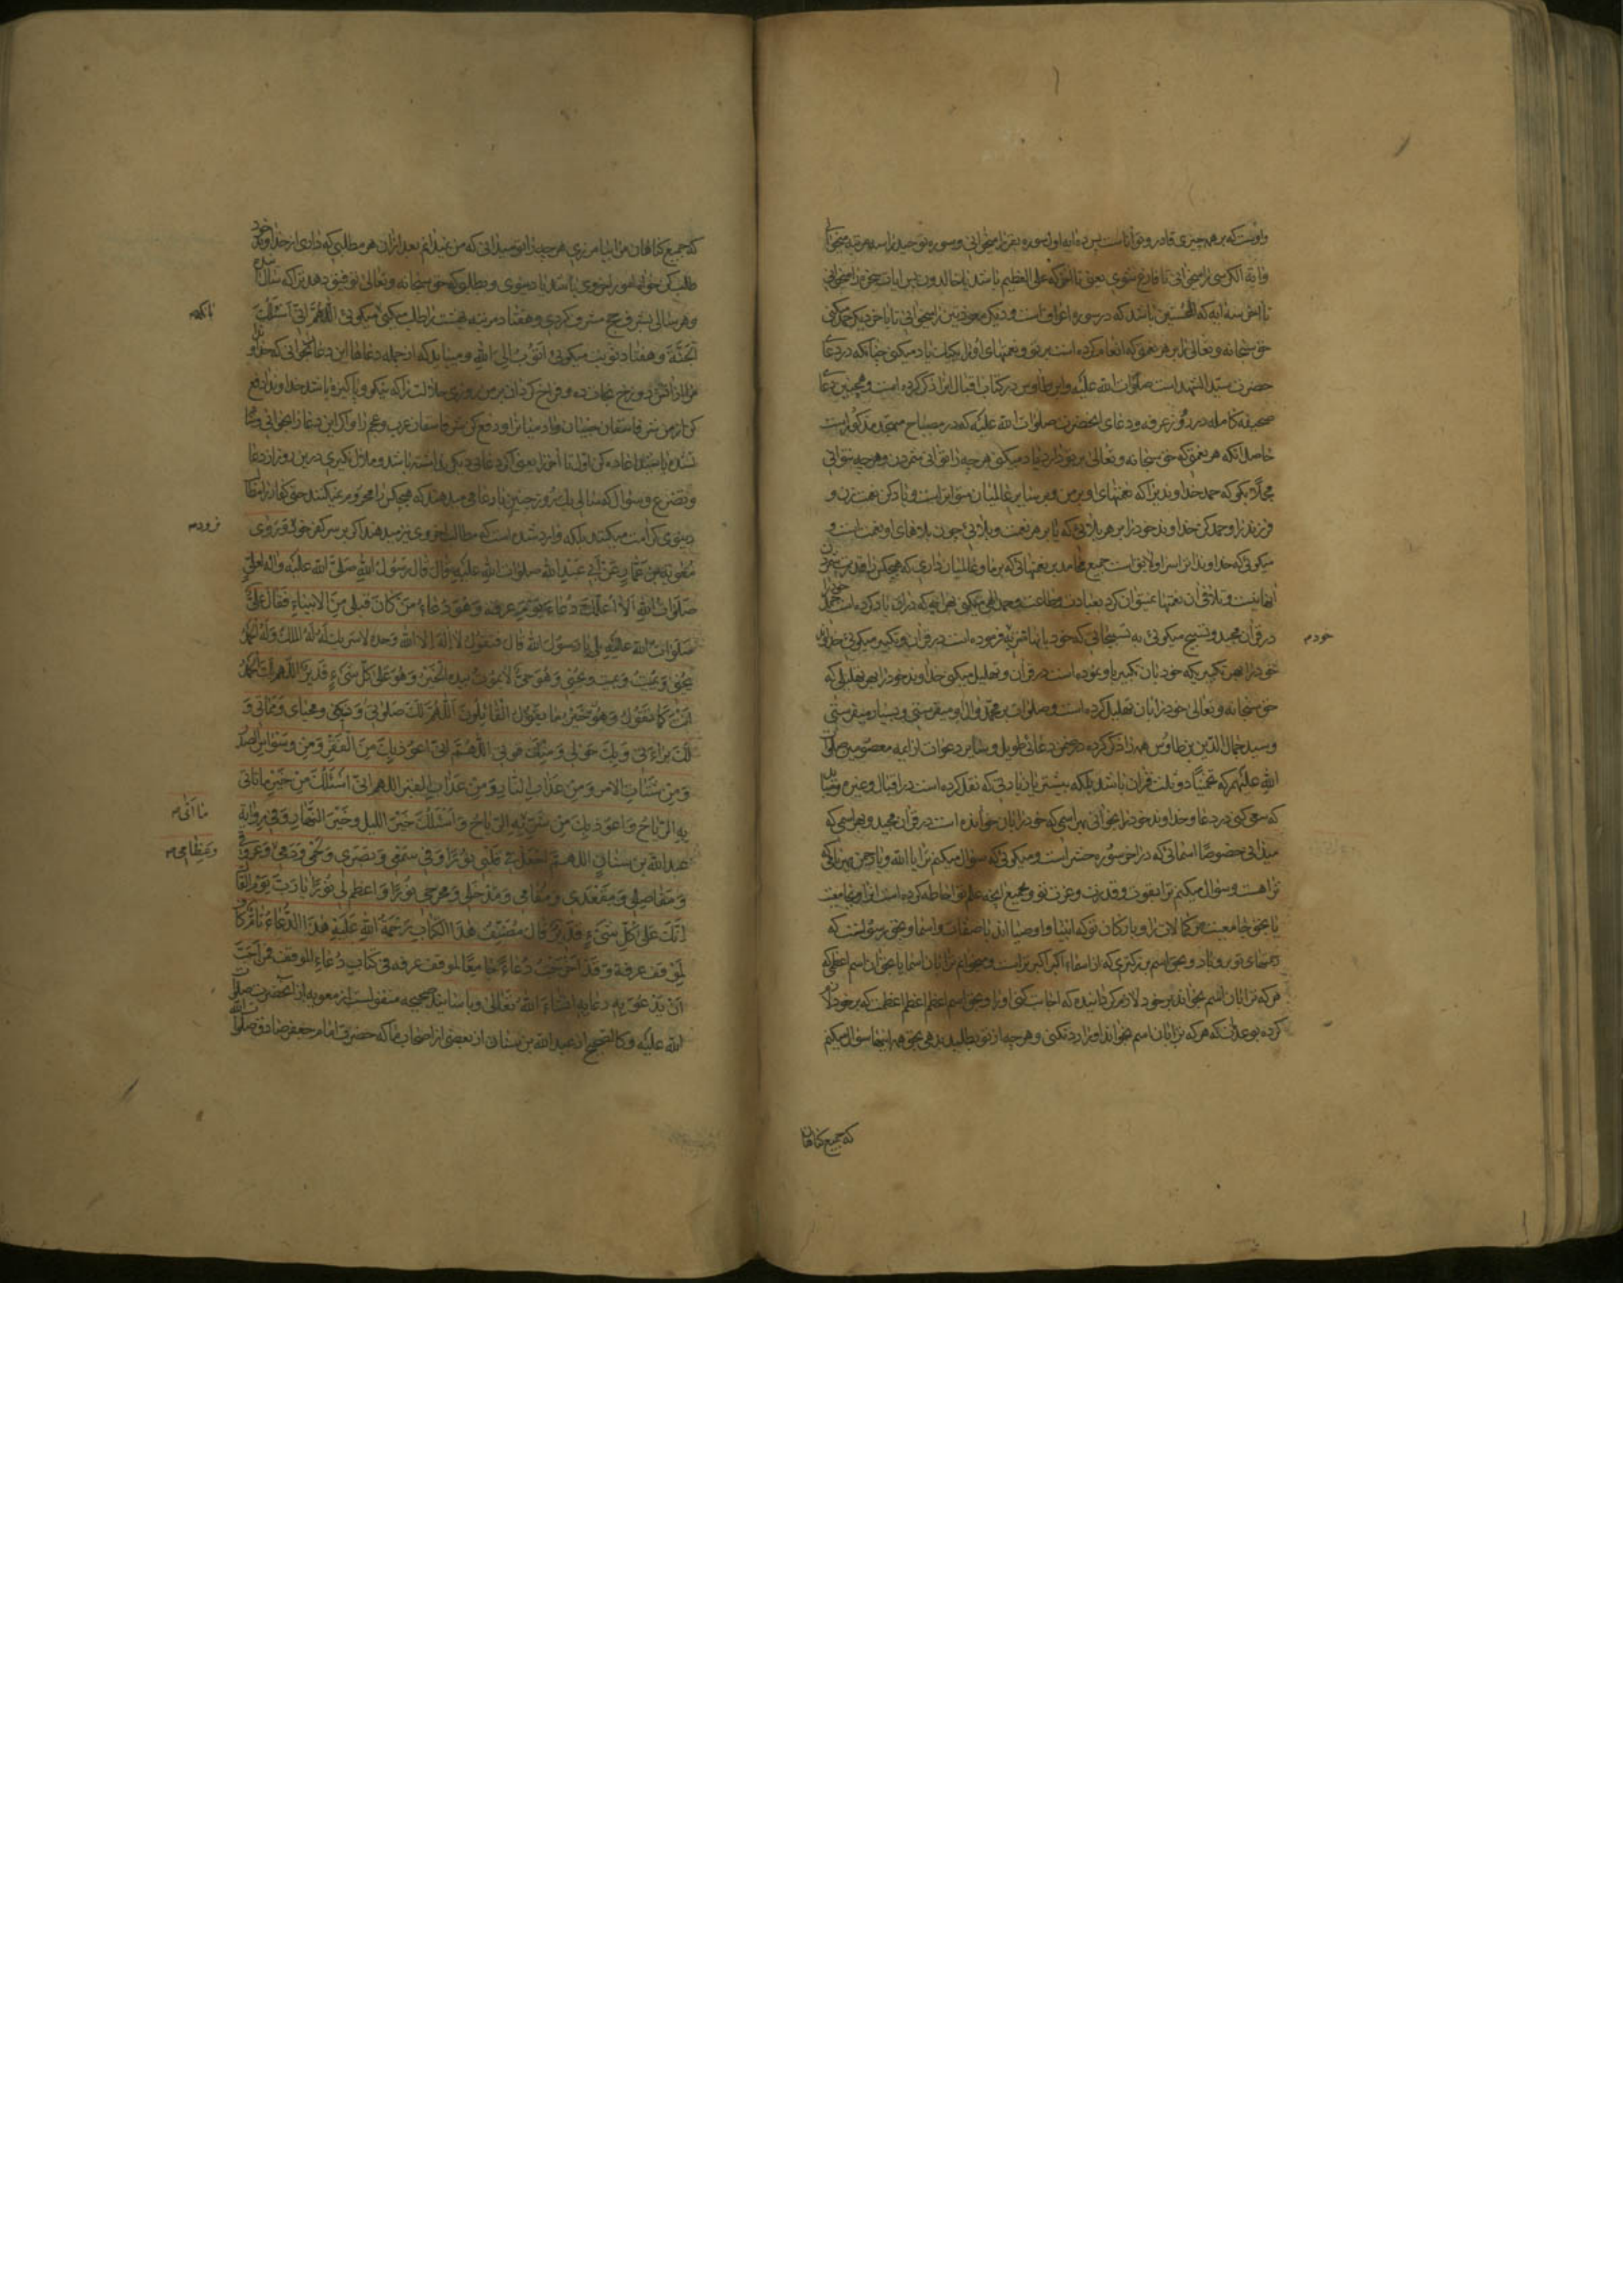 واوست که بر همه چیزی قادر و تواناست پس ده ایه اول سوره بقره را میخوانی و سوره توحید را سه مرتبه میخوانی
و ایة الکرسی را میخوانی تا فارغ شوی یعنی تا انجا که علی العظیم باشد یا خالدون پس ایات سخره را میخوانی
تا اخر سه ایه که المحسنین باشد که در سوره اعراف است و دیگر معوذتین را میخوانی تا باخر دیگر حمد میکنی
حق سبحانه و تعالی را بر هر نعمتی که انعام کرده است بر تو و نعمتهای او را یک یک یاد میکنی چنانکه در دعای
حضرت سید الشهداست صلوات الله علیه و ابن طاوس در کتاب اقبال انرا ذکر کرده است و همچنین دعای
صحیفه کامله در روز عرفه و دعای انحضرت صلوات الله علیه که در مصباح متهجد مذکور است
حاصل انکه هر نعمتی که حق سبحانه و تعالی بر تو دارد یاد میکنی هر چه را توانی شمردن و هر چه نتوانی
مجملا بگو که حمد خداوندیرا که نعمتهای او بر من و بر سایر عالمیان متواتر است و یاد کن نعمت زن و
فرزند را و حمد کن خداوند خود را بر هر بلائی که
میکوئی که خداوندا تراست و لایق است جمیع محامد بر نعمتهائی که بر ما و عالمیان داری که هیچکس را قدرت شمردن
انها نیست و تلافی آن نعمتها نمیتوان کرد بعبادت و طاعت و حمد الهی میکنی بهر انچه که در آن یاد کرده است حمد خود را
در قرآن مجید و تسبیح میکوئی به تسبیحاتی که خود بانها تنزیه فرموده است در قرآن و تکبیر میکوئی خداوند
خود را بهر تکبیریکه خود بان تکبیر یاد نموده است در قرآن و تهلیل میکنی خداوند خود را بهر تهلیلی که
حق سبحانه و تعالی خود را بان تهلیل کرده است و صلوات بر محمد و آل او میفرستی و بسیار میفرستی
و سید جمال الدین بن طاوس همه را ذکر کرده در ضمن دعائی طویل و سایر دعوات از ایمه معصومین صلوات
الله علیهم که تخمینا دو ثلث قران باشد بلکه بیشتر بان زیادتی که نقل کرده است در اقبال و غیره
که سعی کنی در دعا و خداوند خود را بخوانی بهر اسمی که خود را بان خوانده است در قرآن مجید و بهر اسمی که
میدانی خصوصا اسمائی که در اخر سوره حشر است و میکوئی که سؤال میکنم ترا یا الله و یا رحمن
تراهست و سؤال میکنم ترا بقوت و قدرت و عزت تو و بجمیع انچه علم تو احاطه کرده است
و بارکان تو که انبیا و اوصیا اند یا صفات و اسما و بحق رسول تست که
رحمتهای تو برو باد و بحق اسم بزرکتری که از اسماء اکبر اکبر تراست و میخوانم ترا بان اسما یا بحق ان اسم اعظمی که
هر که ترا بان اسم بخواند بر خود لازم کردانیده که اجابت کنی او را و بحق اسم اعظم اعظم اعظمت که بر خود لازم
کرده بوعدات که هر که ترا بان اسم بخواند او را رد نکنی و هر چه از تو بطلبد بدهی بحق همه اینها سؤال میکنم
خود م
که جمیع کناهان
که جمیع کناهان مرا بیامرزی هر چه را تو میدانی که من نمیدانم بعد ازان هر مطلبی که داری از خداوند خود
طلب کن خواه امور اخروی باشد یا دنیوی و بطلب که حق سبحانه و تعالی توفیق دهد ترا که سال آینده
و هر سالی بشرف حج مشرف کردی و هفتاد مرتبه بهشت را طلب میکنی میکوئی اللهم انی اسئلک
الجنة و هفتاد نوبت میکوئی اتوب الی الله و میباید که از جمله دعاها این دعا بخوانی که خداوندا
مرا از آتش دوزخ نجات ده و فراخ کردان بر من روزی حلالت را که نیکو و پاکیزه باشد خداوندا دفع
کن از من شر فاسقان جنیان و ادمیانرا و دفع کن شر فاسقان عرب و عجم را و اکر این دعا را بخوانی و شام
نشده باشد اعاده کن از اول تا آخر یعنی اکر دعائی دیکر نداشته باشد و ملال نگیری درین روز از دعا
و تضرع و سؤال که سالی یک روز چنین بار عامی میدهند که هیچکس را محروم نمیکنند حتی کفار را
دنیوی کرامت میکنند بلکه وارد شده است که مطالب اخروی نیز میدهند اکر بر سر کفر خود نروند و روی
معویة بن عمار عن ابی عبد الله صلوات الله علیه قال قال رسول الله صلی الله علیه و اله لعلی
صلوات الله الا اعلمک دعاء یوم عرفه و هو دعاء من کان قبلی من الانبیاء فقال علی
صلوات الله علیه بلی یا رسول الله قال فتقول لا اله الا الله وحده لا شریک له له الملک و له الحمد
یحیی و یمیت و یمیت و یحیی و هو حی لا یموت بیده الخیر و هو علی کل شیء قدیر اللهم لک الحمد
انت کما تقول و هو خیر مما یقول القائلون اللهم لک صلوتی و نسکی و محیای و مماتی و
لک براءتی و بک حولی و منک قوتی اللهم انی اعوذ بک من الفقر و من وسواس الصدر
و من شتات الامر و من عذاب النار و من عذاب القبر اللهم انی اسئلک من خیر ما تاتی
به الریاح و اعوذ بک من شر ما تاتی به الریاح و اسئلک خیر اللیل و خیر النهار و فی روایة
عبد الله بن سنان اللهم اجعل فی قلبی نورا و فی سمعی و بصری و لحمی و دمی و عروقی
و مفاصلی و مقعدی و مقامی و مدخلی و مخرجی نورا و اعظم لی نورا یا رب یوم القاک
انک علی کل شیء قدیر قال مصنف هذا الکتاب رحمة الله علیه هذا الدعاء تام کاف
لموقف عرفة و قد اخرجت دعاء جامعا لموقف عرفه فی کتاب دعاء الموقف فمن احب
ان یدعو به دعا به انشاء الله تعالی و باسانید صحیحه منقولست از معویه از آنحضرت صلوات
الله علیه و کالصحیح از عبد الله بن سنان از بعضی از اصحاب ما که حضرت امام جعفر صادق صلوات الله
نرود م
ما اتی م
و عظامی م